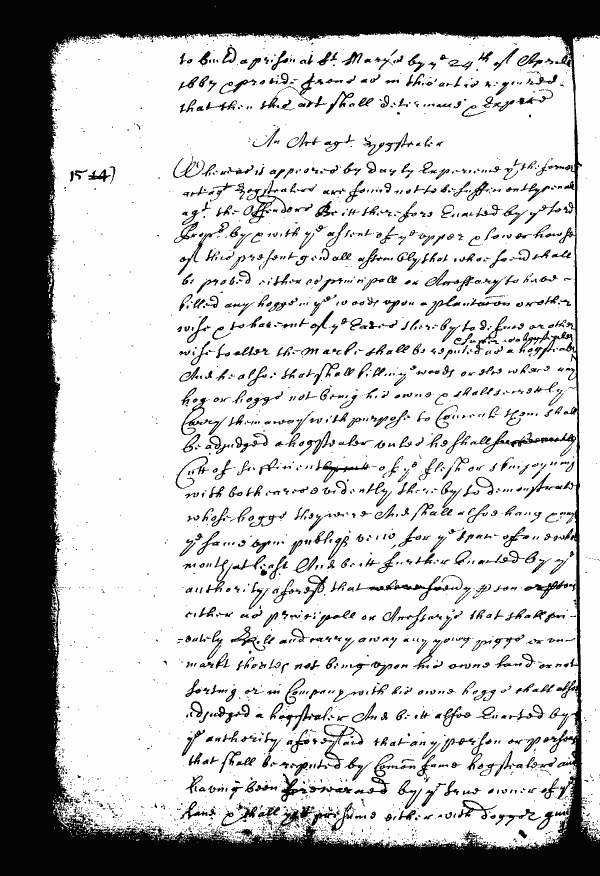 to build a prison at St. Marys by ye 24th of Aprill
1667 & provide Irons as in this act is required
that then this act shall determine & Expire
An Act agt. Hogstealers
15 14) Whereas it appeares by dayly Experience yt the former
act agt Hogstealers are found not to be sufficiently penall
agt. the Offenders Be itt therefore Enacted by ye Lord
Propr. by & with ye assent of ye upper & lower howse
of this present genall assembly that whoe soevr shall
be proved either as principall or Accessary to have
killed any hogge in ye woods upon a plantacon or other
wise & to have cut of ye Eares thereby to deface or other
wise to alter the marke shall be reputed as a hogstealer
And he alsoe that shall kill in ye woods or else where any
hog or hoggs not being his owne & shall secretly
Carry them away with purpose to Conceale them shall
be adjudged a hogstealer unles he shall sufficiently
Cutt of sufficient of ye flesh or skin joyning
with both eares evidently thereby to demonstrate
whose hoggs they were And shall alsoe hang
ye same upon publiq veiw for ye space of
month att least And be itt further Enacted by ye
authority aforesd that where soever any pson or psons
either as principall or Accessarys that shall pri-
vately kill and carry away any young piggs or un-
markt shoates not being upon his owne land or not
sorting or in Company with his owne hoggs shall alsoe
adjudged a hogstealer And be itt alsoe Enacted by
ye authority aforesaid that any person or persons
that shall be reputed by Comon fame hogstealers and
having been forewarned by ye true owner of ye
land & shall yett presume either with dogge or gunn